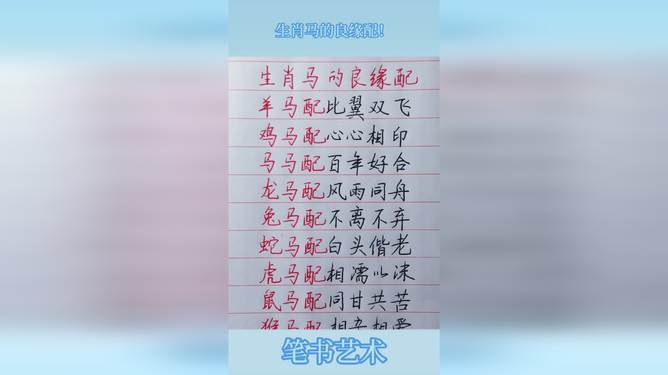 生肖马的良缘配!
生肖马的良缘配
羊马配比翼双飞
鸡马配心心相印
马马配百年好合
龙马配风雨同舟
兔马配不离不弃
蛇马配白头偕老
虎马配相濡以沫
鼠马配同甘共苦
猴马配相亲相爱
笔书艺术